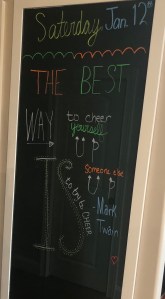 Saturday, Jan. 12th
THE BEST
WAY
to cheer
yourself
UP
IS
to try to CHEER
Someone else
UP
-Mark
Twain